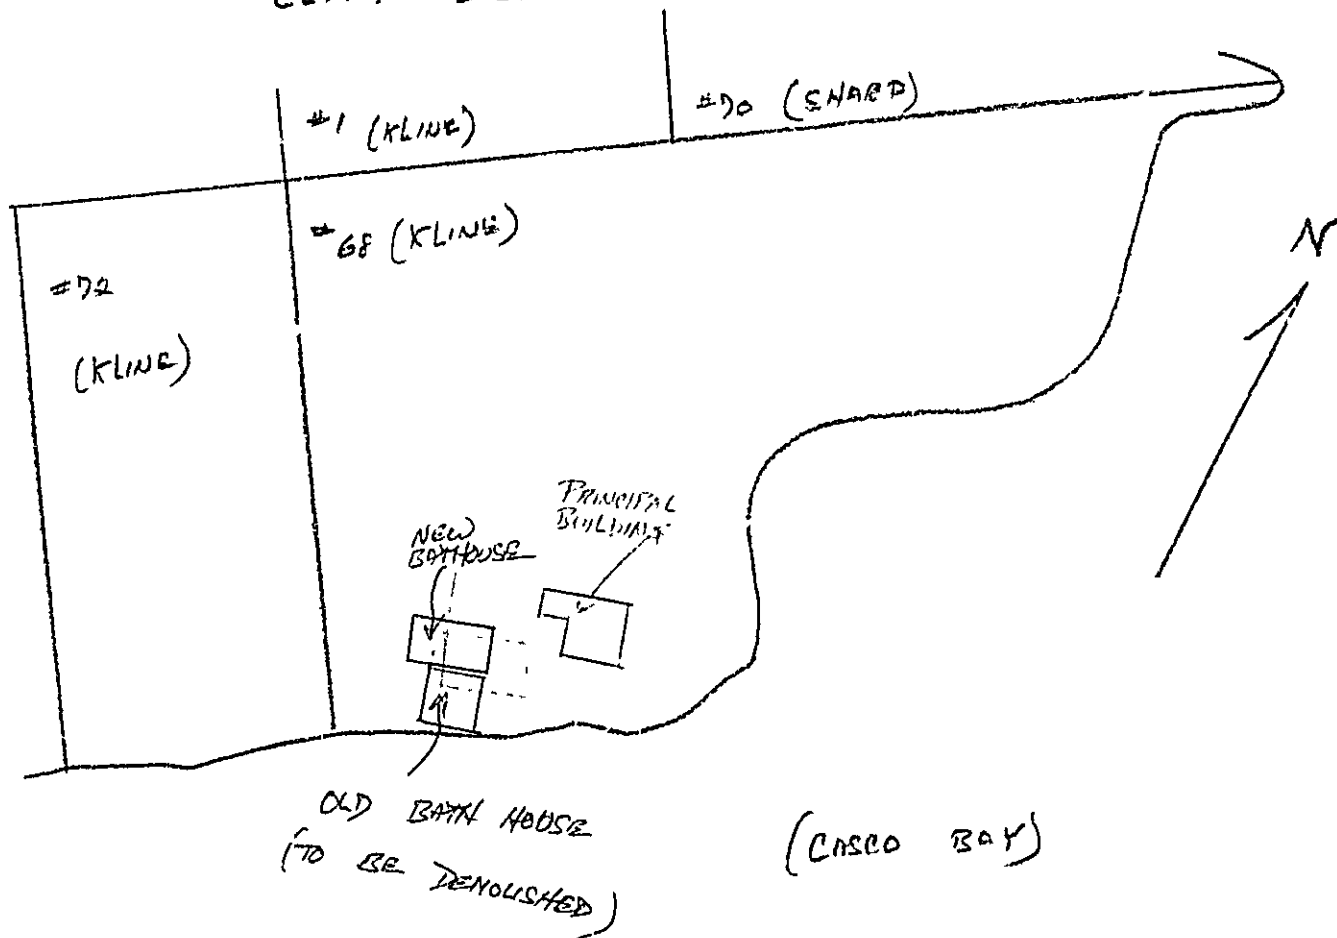 #1 (KLINE)
#70 (SNARD)
#68 (KLINE)
#72
(KLINE)
N
PRINCIPAL
BUILDING
NEW
BATHOUSE
OLD BATH HOUSE
(TO BE DEMOLISHED)
(CASCO BAY)